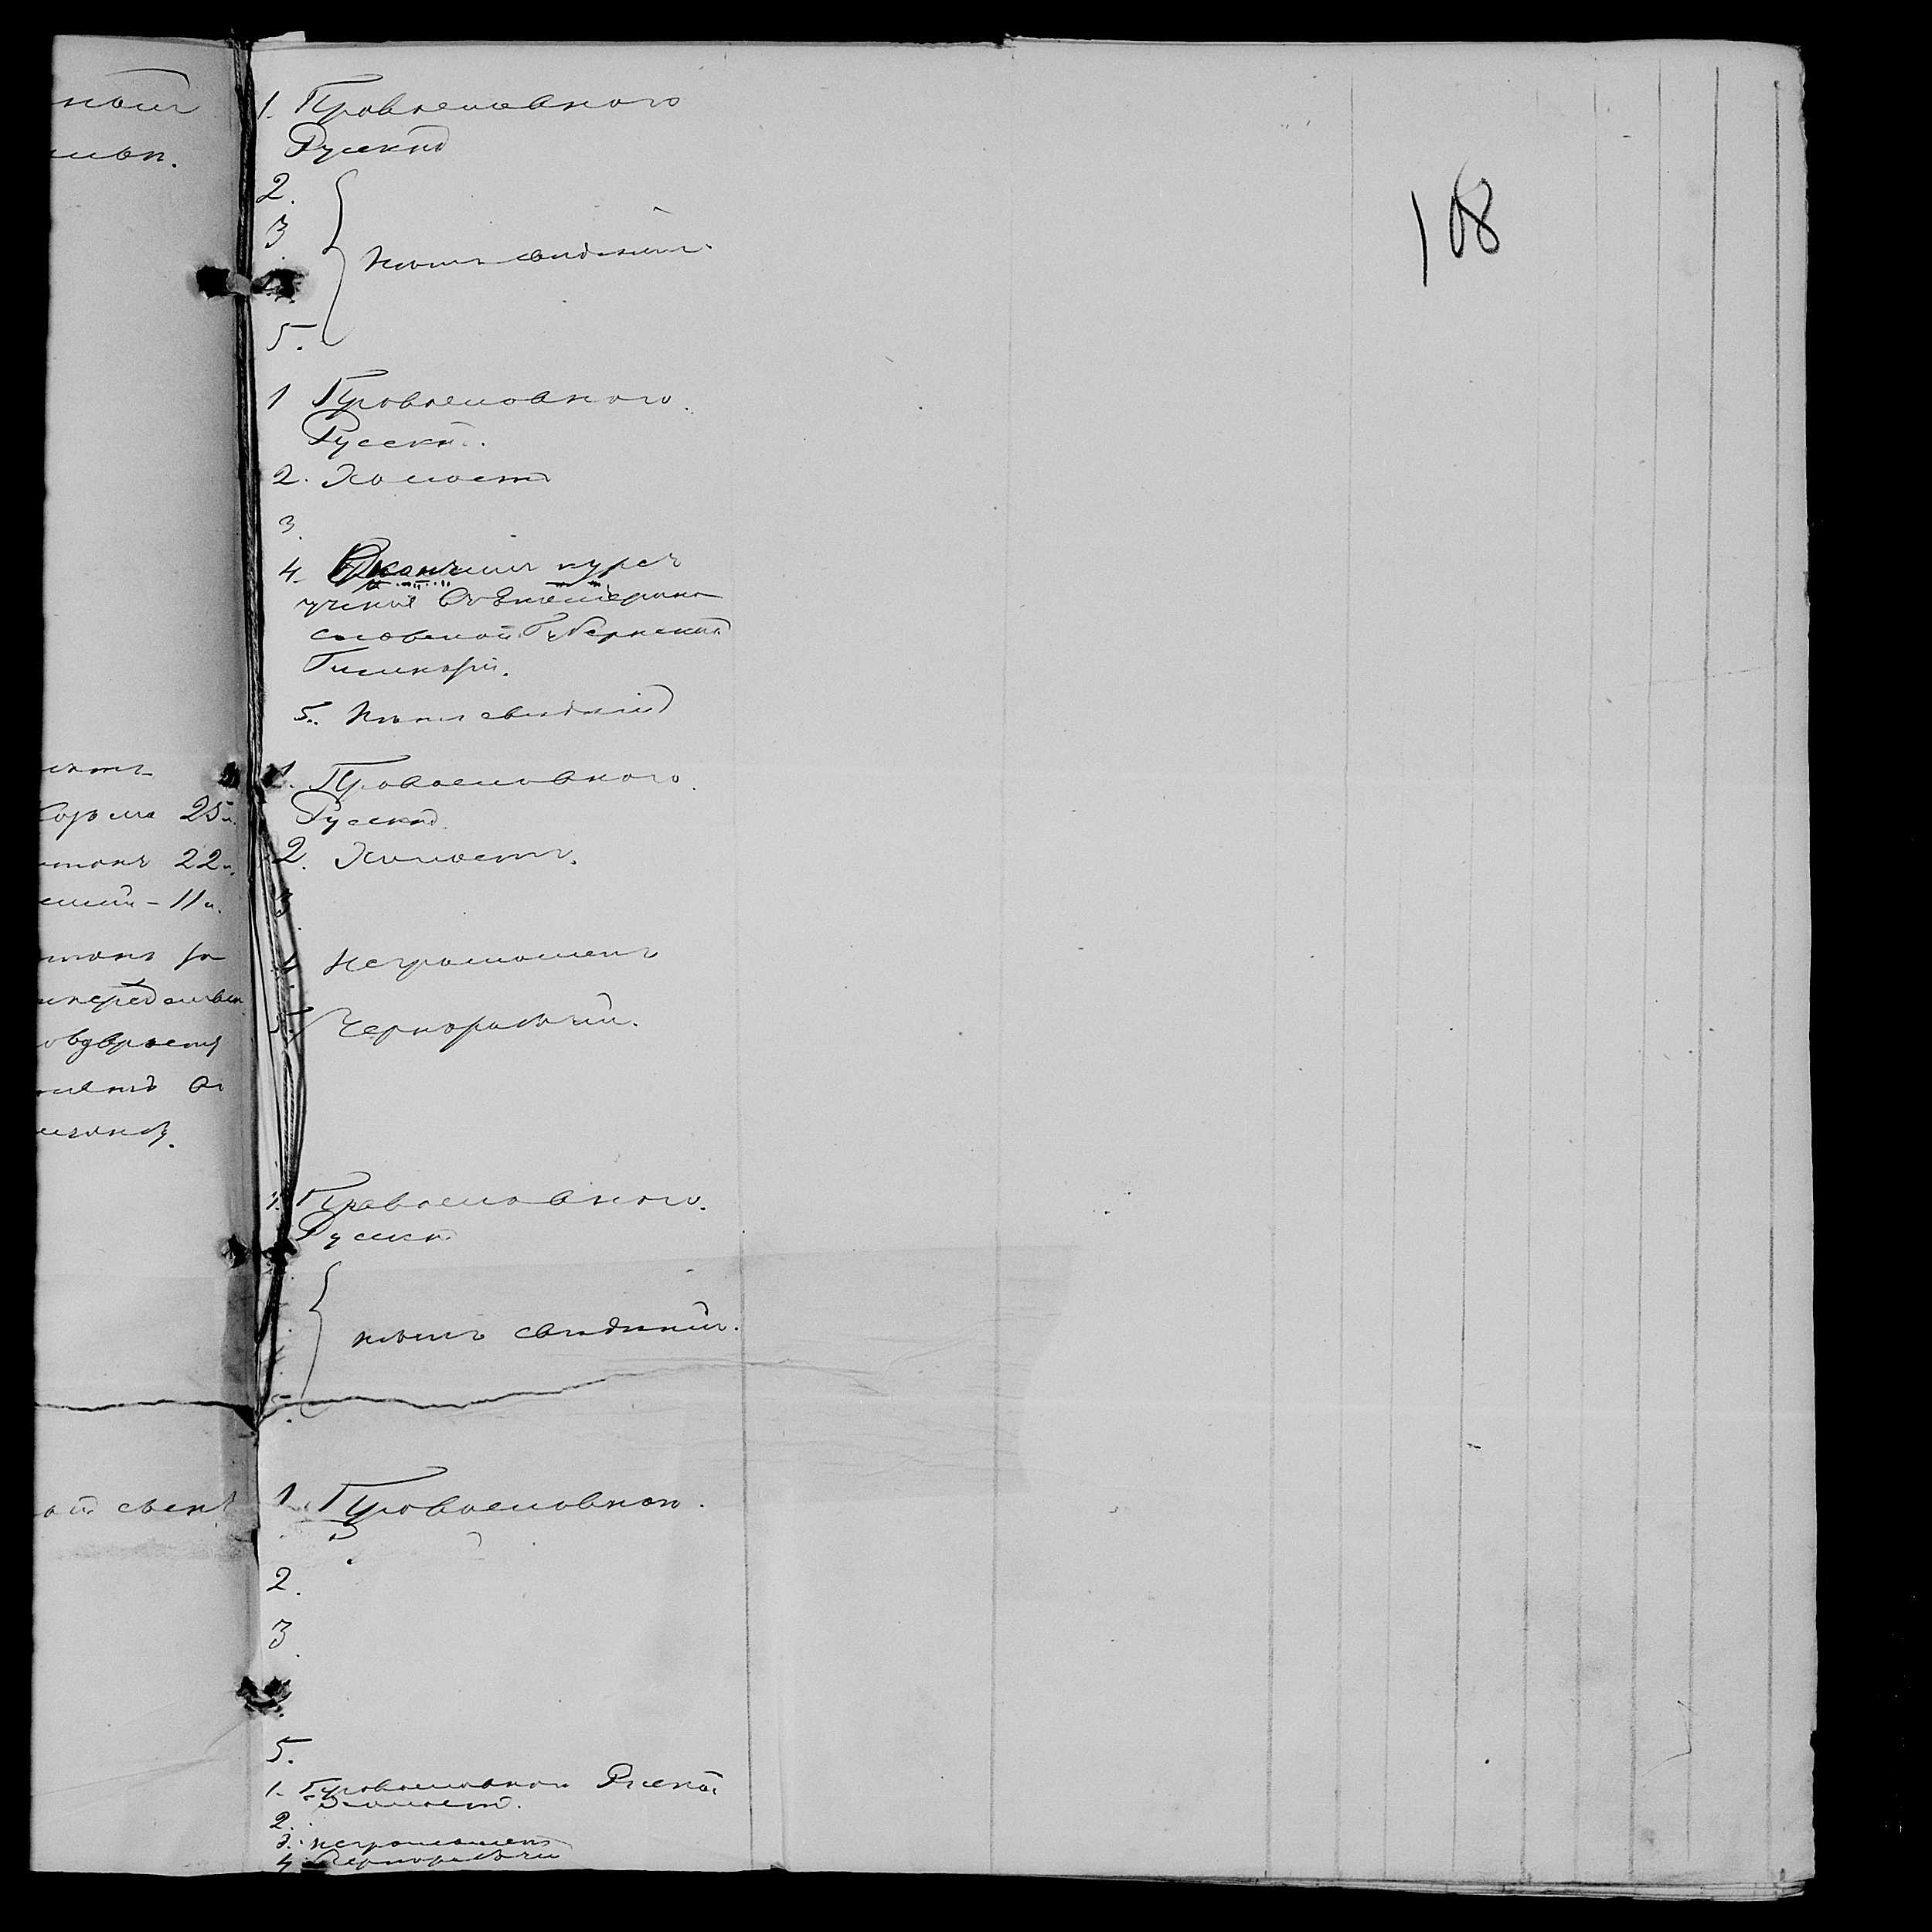 108
1. Православнаго
Русскій
2.
3
4.
5.
Нѣтъ свѣдѣній.
1 Православнаго.
Русскій.
2. Холостъ
3.
4. Окончилъ курсъ
ученія въ Екатерино
славской Губернской
Гимназіи.
5. Нѣтъ свѣдѣній
1. Православнаго.
Русскій
2. Холостъ.
3.
4. Неграмотенъ
5. Чернорабочій.
1. Православнаго.
Русскій
нѣтъ свѣдѣній.
1. Православнаго.
2.
3.
5.
1. Православнаго Русскій
Холостъ.
2.
3. неграмотенъ
4 Чернорабочій
25
22
11